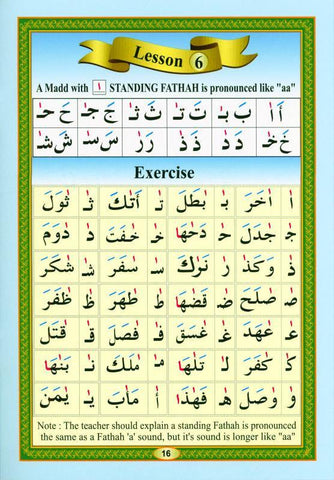 Lesson 6
A Madd with اٰ STANDING FATHAH is pronounced like "aa"
أَ اٰ بَ بٰـ تَ تٰـ ثَ ثٰـ جَ جٰـ حَ حٰـ
خَ خٰـ دَ دٰ ذَ ذٰ رَ رٰ سَ سٰـ شَ شٰـ
Exercise
اٰ أٰخَرَ بٰـ بٰطَلَ تٰـ أَتٰكَ ثٰـ ثٰوَلَ
جٰـ جٰدَلَ حٰـ دَحٰهَا خٰـ خٰفَتَ دٰ دٰوَمَ
ذٰ وَكَذٰ رٰ نَرٰكَ سٰـ سٰفَرَ شٰـ شٰكَرَ
صٰـ صٰلَحَ ضٰـ قَضٰهَا طٰ طٰهَرَ ظٰ ظٰفَرَ
عٰـ عٰهَدَ غٰـ غٰسَقَ فٰـ فٰصَلَ قٰـ قٰتَلَ
كٰـ كٰفَرَ لٰـ تَلٰهَا مٰـ مٰلَكَ نٰـ بَنٰهَا
وٰ وٰصَلَ هٰـ فَهٰذَا أٰ مَأٰبَ يٰـ يٰمَنَ
Note : The teacher should explain a standing Fathah is pronounced
the same as a Fathah 'a' sound, but it's sound is longer like "aa"
16